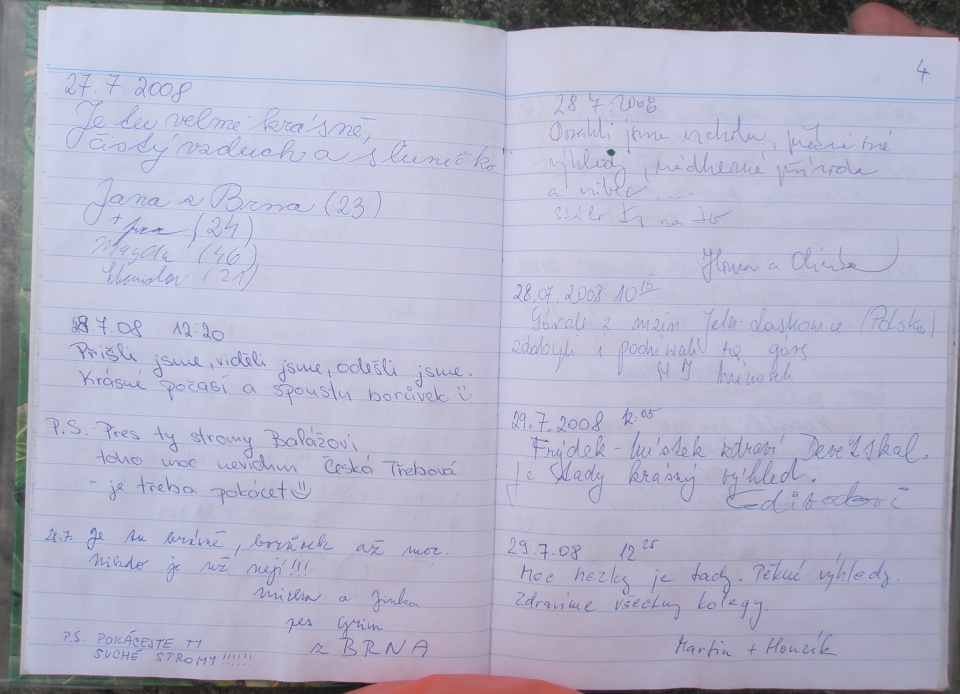 27.7.2008
Je tu velmi krásně,
čistý vzduch a sluníčko
Jana z Brna (23)
+ (24)
Magda (46)
Stanislav (21)
28.7.08 12:20
Přišli jsme, viděli jsme, odešli jsme.
Krásné počasí a spoustu borůvek
P.S. Přes ty stromy Balážovi
toho moc nevidim Česká Třebová
- je třeba pokácet
28.7. Je tu krásně, borůvek až moc.
Nikdo je už nejí!!!
Mirka a Jirka
pes Grim
z BRNA
P.S. POKÁCEJTE TY
SUCHÉ STROMY!!!!!!
4
28.7.2008
jsme vrcholu,
výhledy, nádherná příroda
a vůbec ....
28.07.2008 10 15
Górale z nizin (Polska)
zdobyli i podziwiali tę górę
29.7.2008 12:05
Frýdek-Místek zdraví Devět skal.
Je tady krásný výhled.
29.7.08 12 25
Moc hezky je tady. Pěkné výhledy.
Zdravíme všechny kolegy.
Martin + Honzík